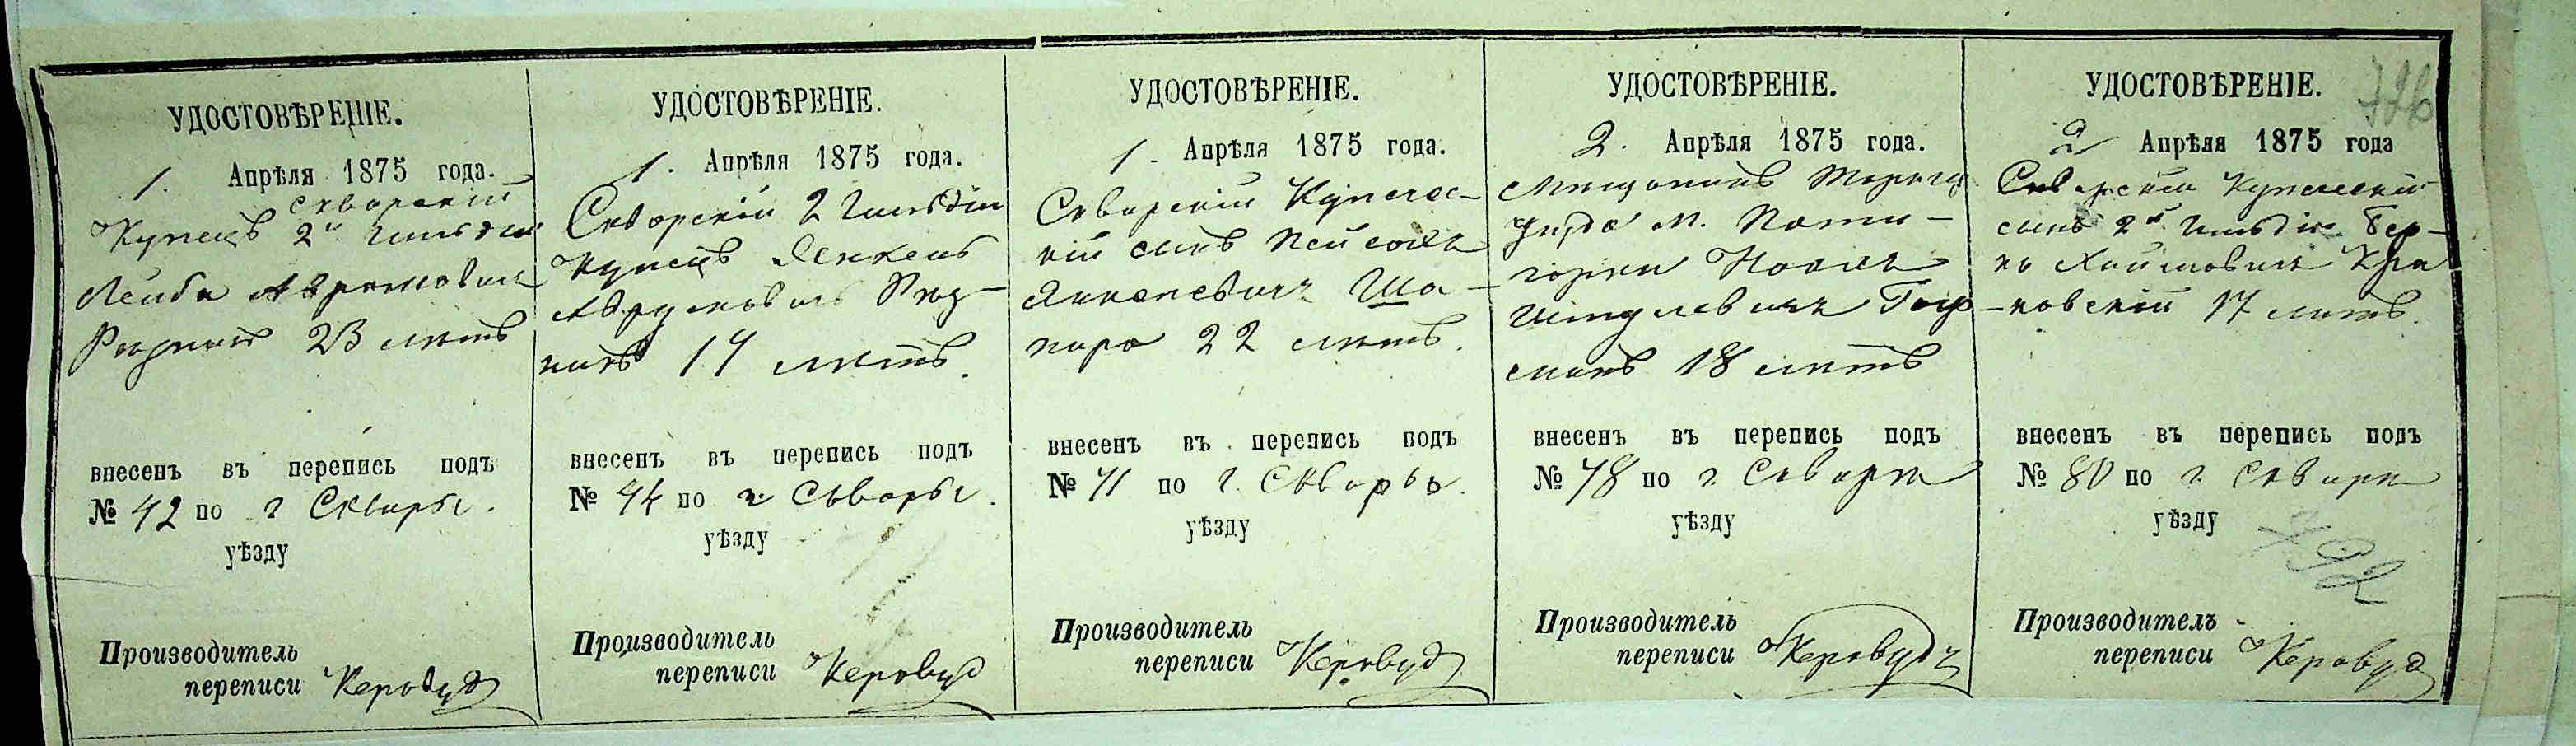 УДОСТОВѢРЕНІЕ.
1. Апрѣля 1875 года.
Сквирскій
Купецъ 2й Гильдіи
Лейба Аврумовичъ
23 лѣтъ
внесенъ въ перепись подъ
№ 42 по г Сквиры.
уѣзду
Производитель
переписи
УДОСТОВѢРЕНІЕ.
1. Апрѣля 1875 года.
Сквирскій 2 Гильдіи
Купецъ Янкель
Аврумовичъ
лѣтъ.
внесенъ въ перепись подъ
№ 44 по г. Сквиры.
уѣзду
Производитель
переписи
УДОСТОВѢРЕНІЕ.
1. Апрѣля 1875 года.
Сквирскій Купечес-
кій сынъ Пейсахъ
Янкелевичъ Ша-
пиро 22 лѣтъ.
внесенъ въ перепись подъ
№ 71 по г. Сквиры.
уѣзду
Производитель
переписи
УДОСТОВѢРЕНІЕ.
2. Апрѣля 1875 года.
Мѣщанинъ
м. Пяти-
горы
18 лѣтъ
внесенъ въ перепись подъ
№ 78 по г. Сквири
уѣзду
Производитель
переписи
УДОСТОВѢРЕНІЕ.
2 Апрѣля 1875 года
Сквирскій Купеческій
сынъ 2й Гильдіи Бер-
ко Хаимовичъ Кра
ковскій 17 лѣтъ.
внесенъ въ перепись подъ
№ 80 по г. Сквири
уѣзду
Производитель
переписи